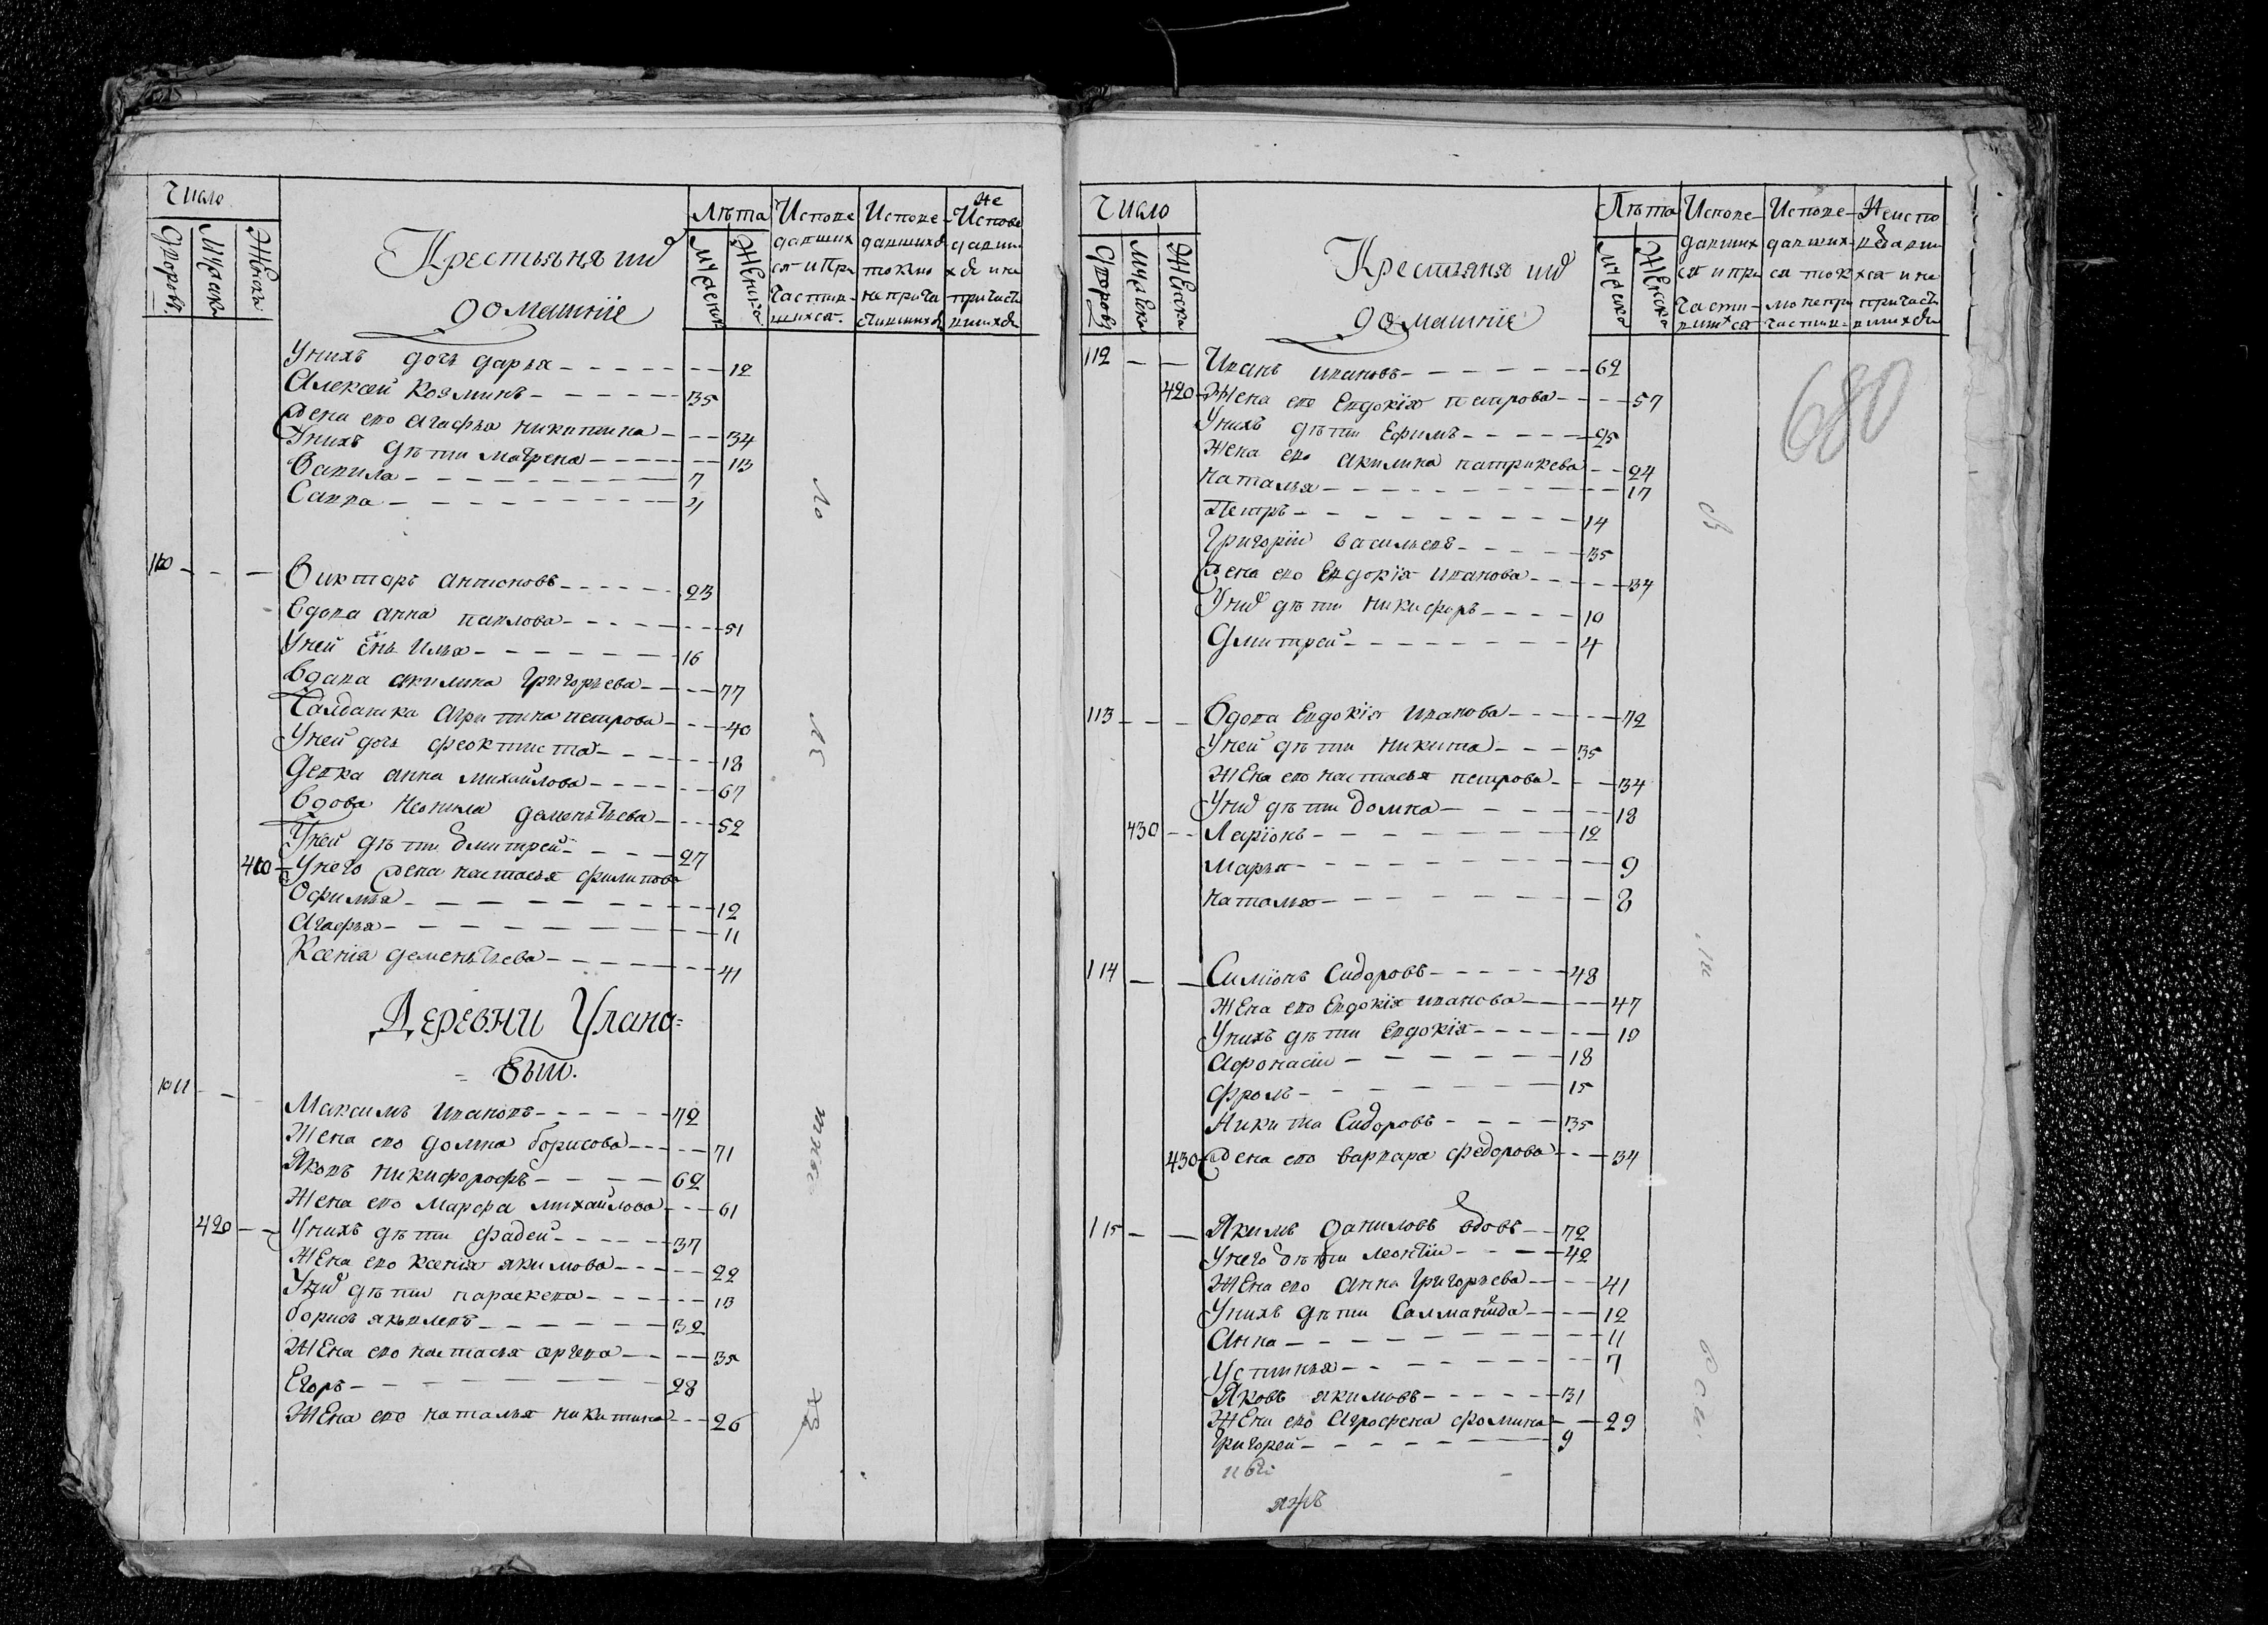 Число
Дворовъ
Мужеска
Женска
Крестьяня ихъ
домашніе
Лѣта
Мужеска
Женска
Исповедавшихся и Причастившихся.
Исповедавшихся токмо непричастившихся
Не Исповедавшихся и не причастившихся
Унихъ дочь дарья 12
Алексей Козминъ 35
Жена ево агафья никитина 34
Унихъ дѣти матрена 13
Вавила 7
Савва 4
110
Виктаръ антоновъ 23
Вдова анна павлова 51
Уней снъ Илья 16
Вдава акилина григорьева 77
Салдатка агрипина петрова 40
Уней дочь феоктиста 18
Девка анна михайлова 67
Вдова неонила деменьтьева 52
Уней дѣти дмитрей 27
410 Унего жена настасья филипова
Офимья 12
Агафья 11
Ксенія деменьтьева 41
Деревни Улано=
=выхъ.
111
Максимъ ивановъ 72
Жена ево домна борисова 71
Яковъ никифорофъ 62
Жена ево марфа михайлова 61
420 Унихъ дѣти фадей 37
Жена ево ксенія якимова 22
Унихъ дѣти параскева 13
борисъ яковлевъ 32
Жена ево настасья 35
Егоръ 28
Жена ево наталья никитина 26
Число
Дворовъ
Мужеска
Женска
Крестьяня ихъ
домашніе
Лѣта
Мужеска
Женска
Исповедавшихся и причастившихся
Исповедавшихся токмо непричастив
Неисповедавшихся и не причаствившихся
680
112 Иванъ ивановъ 62
420 Жена ево Евдокія петрова 57
Унихъ дѣти Ефимъ 25
Жена ево акилина патрикева 24
наталья 17
Петръ 14
Григоріи васильевъ 35
Жена ево Евдокія иванова 34
Унихъ дѣти никифоръ 10
Дмитрей 4
113 Вдова Евдокія иванова 72
Уней дѣти никита 35
Жена ево настасья петрова 34
Унихъ дѣти домна 18
430 Ларіонъ 12
марья 9
наталья 8
114 Симіонъ Сидоровъ 48
Жена ево Евдокія иванова 47
Унихъ дѣти Евдокія 19
Афонасіи 18
фролъ 15
Никита Сидоровъ 35
430 Жена ево варвара федорова 34
115 Якимъ даниловъ вдовъ 72
Унего дѣти леонтіи 42
Жена ево анна григорьева 41
Унихъ дѣти Саламанида 12
Анна 11
Устинья 7
Яковъ якимовъ 31
Жена ево агрофена фомина 29
Григорей 9